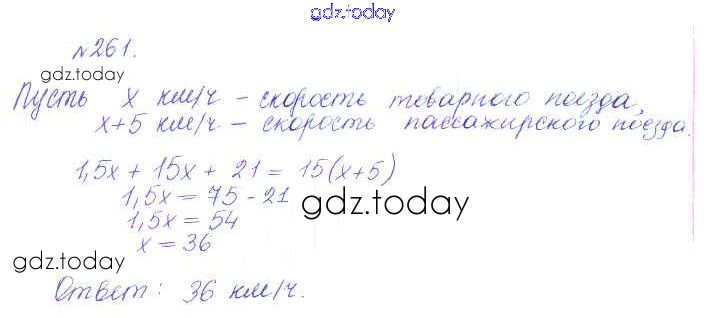 gdz.today
№261.
gdz.today
Пусть x км/ч – скорость товарного поезда,
x+5 км/ч – скорость пассажирского поезда.
1,5x + 15x + 21 = 15(x+5)
1,5x = 75 - 21
gdz.today
1,5x = 54
x = 36
gdz.today
Ответ: 36 км/ч.